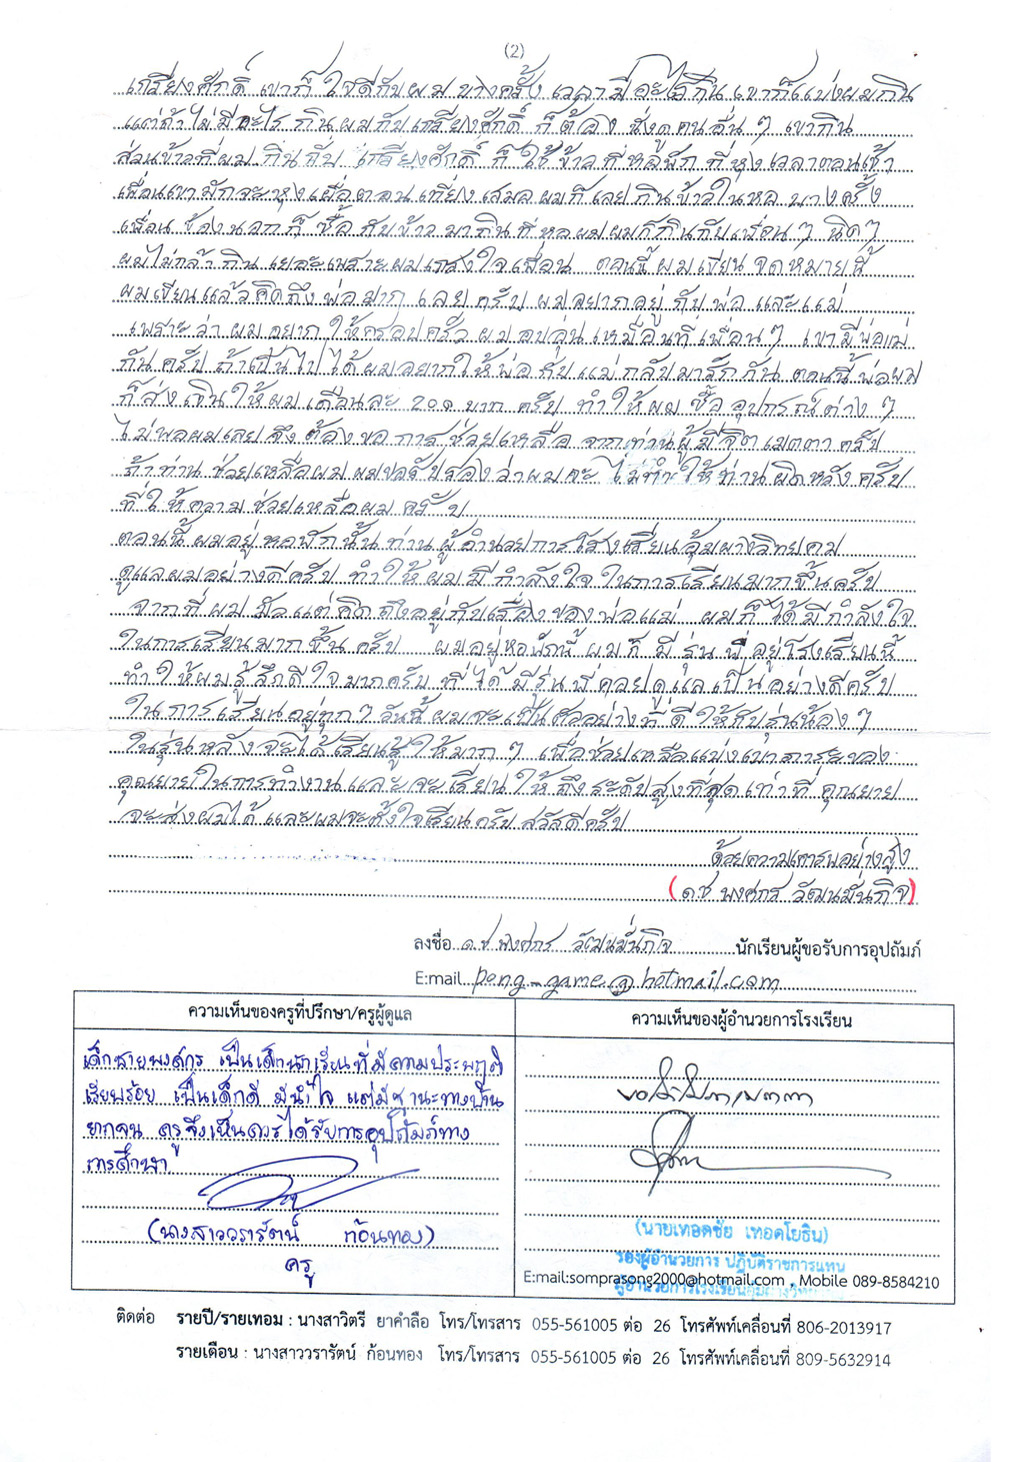 (2)
เกรียงศักดิ์ เขาก็ ใจดีกับผม บางครั้ง เวลามีอะไรกิน เขาก็แบ่งผมกิน
แต่ถ้าไม่มีอะไร กินผมกับเกรียงศักดิ์ ก็ต้อง นั่งดูคนอื่น ๆ เขากิน
ส่วนข้าวที่ผม กินกับ เกรียงศักดิ์ ก็ ใช้ข้าวที่หอพัก ที่หุงเวลาตอนเช้า
เพื่อนเขามักจะหุงเผื่อตอนเที่ยงเสมอ ผมก็เลยกินข้าวในหอ บางครั้ง
เพื่อน ข้างนอกก็ ซื้อ กับข้าว มากินที่หอผมผมก็กินกับเพื่อน ๆ นิดๆ
ผมไม่กล้ากิน เยอะเพราะผมเกรงใจเพื่อน ตอนนี้ ผมเขียน จดหมายนี้
ผมเขียนแล้วคิดถึงพ่อมาก เลยครับ ผมอยากอยู่ กับพ่อ และแม่
เพราะว่า ผมอยากให้ครอบครัว ผมอบอุ่นเหมือนที่เพื่อนๆ เขามีพ่อแม่
กันครับ ถ้าเป็นไปได้ผมอยากให้พ่อ กับแม่ กลับมารักกัน ตอนนี้พ่อผม
ก็ส่งเงินให้ผมเดือนละ 200 บาท ครับ ทำให้ผม ซื้อ อุปกรณ์ต่าง ๆ
ไม่พอผมเลยจึง ต้องขอ การช่วยเหลือ จากท่านผู้มีจิตเมตตา ครับ
ถ้าท่าน ช่วยเหลือผม ผมขอรับรองว่าผมจะ ไม่ทำให้ท่านผิดหวัง ครับ
ที่ให้ความช่วยเหลือผมครับ
ตอนนี้ ผมอยู่ หอพักนั้นท่านผู้อำนวยการโรงเรียนอุ้มผางวิทยคม
ดูแลผมอย่างดีครับ ทำให้ผมมีกำลังใจ ในการเรียนมากขึ้นครับ
จากที่ผม มัวแต่คิดถึงอยู่กับเรื่องของพ่อแม่ ผมก็ได้มีกำลังใจ
ในการเรียนมากขึ้นครับ ผมอยู่หอพักนี้ ผมก็ มี รุ่น พี่ อยู่โรงเรียนนี้
ทำให้ผมรู้สึกดีใจมากครับ ที่ได้มีรุ่นพี่คอยดูแลเป็นอย่างดีครับ
ในการเรียนอยู่ทุกๆ วันนี้ ผมจะเป็นตัวอย่างที่ดีให้กับรุ่นน้อง ๆ
ในรุ่นหลังจะได้เรียนรู้ให้มากๆ เพื่อช่วยเหลือแบ่งเบาภาระของ
คุณยายในการทำงาน และจะเรียนให้ถึงระดับสูงที่สุดเท่าที่ คุณยาย
จะส่งผมได้ และผมจะตั้งใจเรียนครับ สวัสดีครับ
ด้วยความเคารพอย่างสูง
(ด.ช พงศกร วัฒนมั่นกิจ)
ลงชื่อ ด.ช พงศกร วัฒนมั่นกิจ นักเรียนผู้ขอรับการอุปถัมภ์
E:mail pong-game@hotmail.com
ความเห็นของครูที่ปรึกษา/ครูผู้ดูแล
เด็กชายพงศกร เป็นเด็กนักเรียนที่มีความประพฤติ
เรียบร้อย เป็นเด็กดี มีน้ำใจ แต่มีฐานะทางบ้าน
ยากจน ครูจึงเห็นควรได้รับการอุปถัมภ์ทาง
การศึกษา
(นางสาววรารัตน์ ก้อนทอง)
ครู
ความเห็นของผู้อำนวยการโรงเรียน
(นายเทอดชัย เทอดโยธิน)
รองผู้อำนวยการ ปฏิบัติราชการแทน
E:mail:somprasong2000@hotmail.com , Mobile 089-8584210
ผู้อำนวยการโรงเรียนอุ้มผางวิทยาคม
ติดต่อ รายปี/รายเทอม : นางสาวิตรี ยาคำลือ โทร/โทรสาร 055-561005 ต่อ 26 โทรศัพท์เคลื่อนที่ 806-2013917
รายเดือน : นางสาววรารัตน์ ก้อนทอง โทร/โทรสาร 055-561005 ต่อ 26 โทรศัพท์เคลื่อนที่ 809-5632914